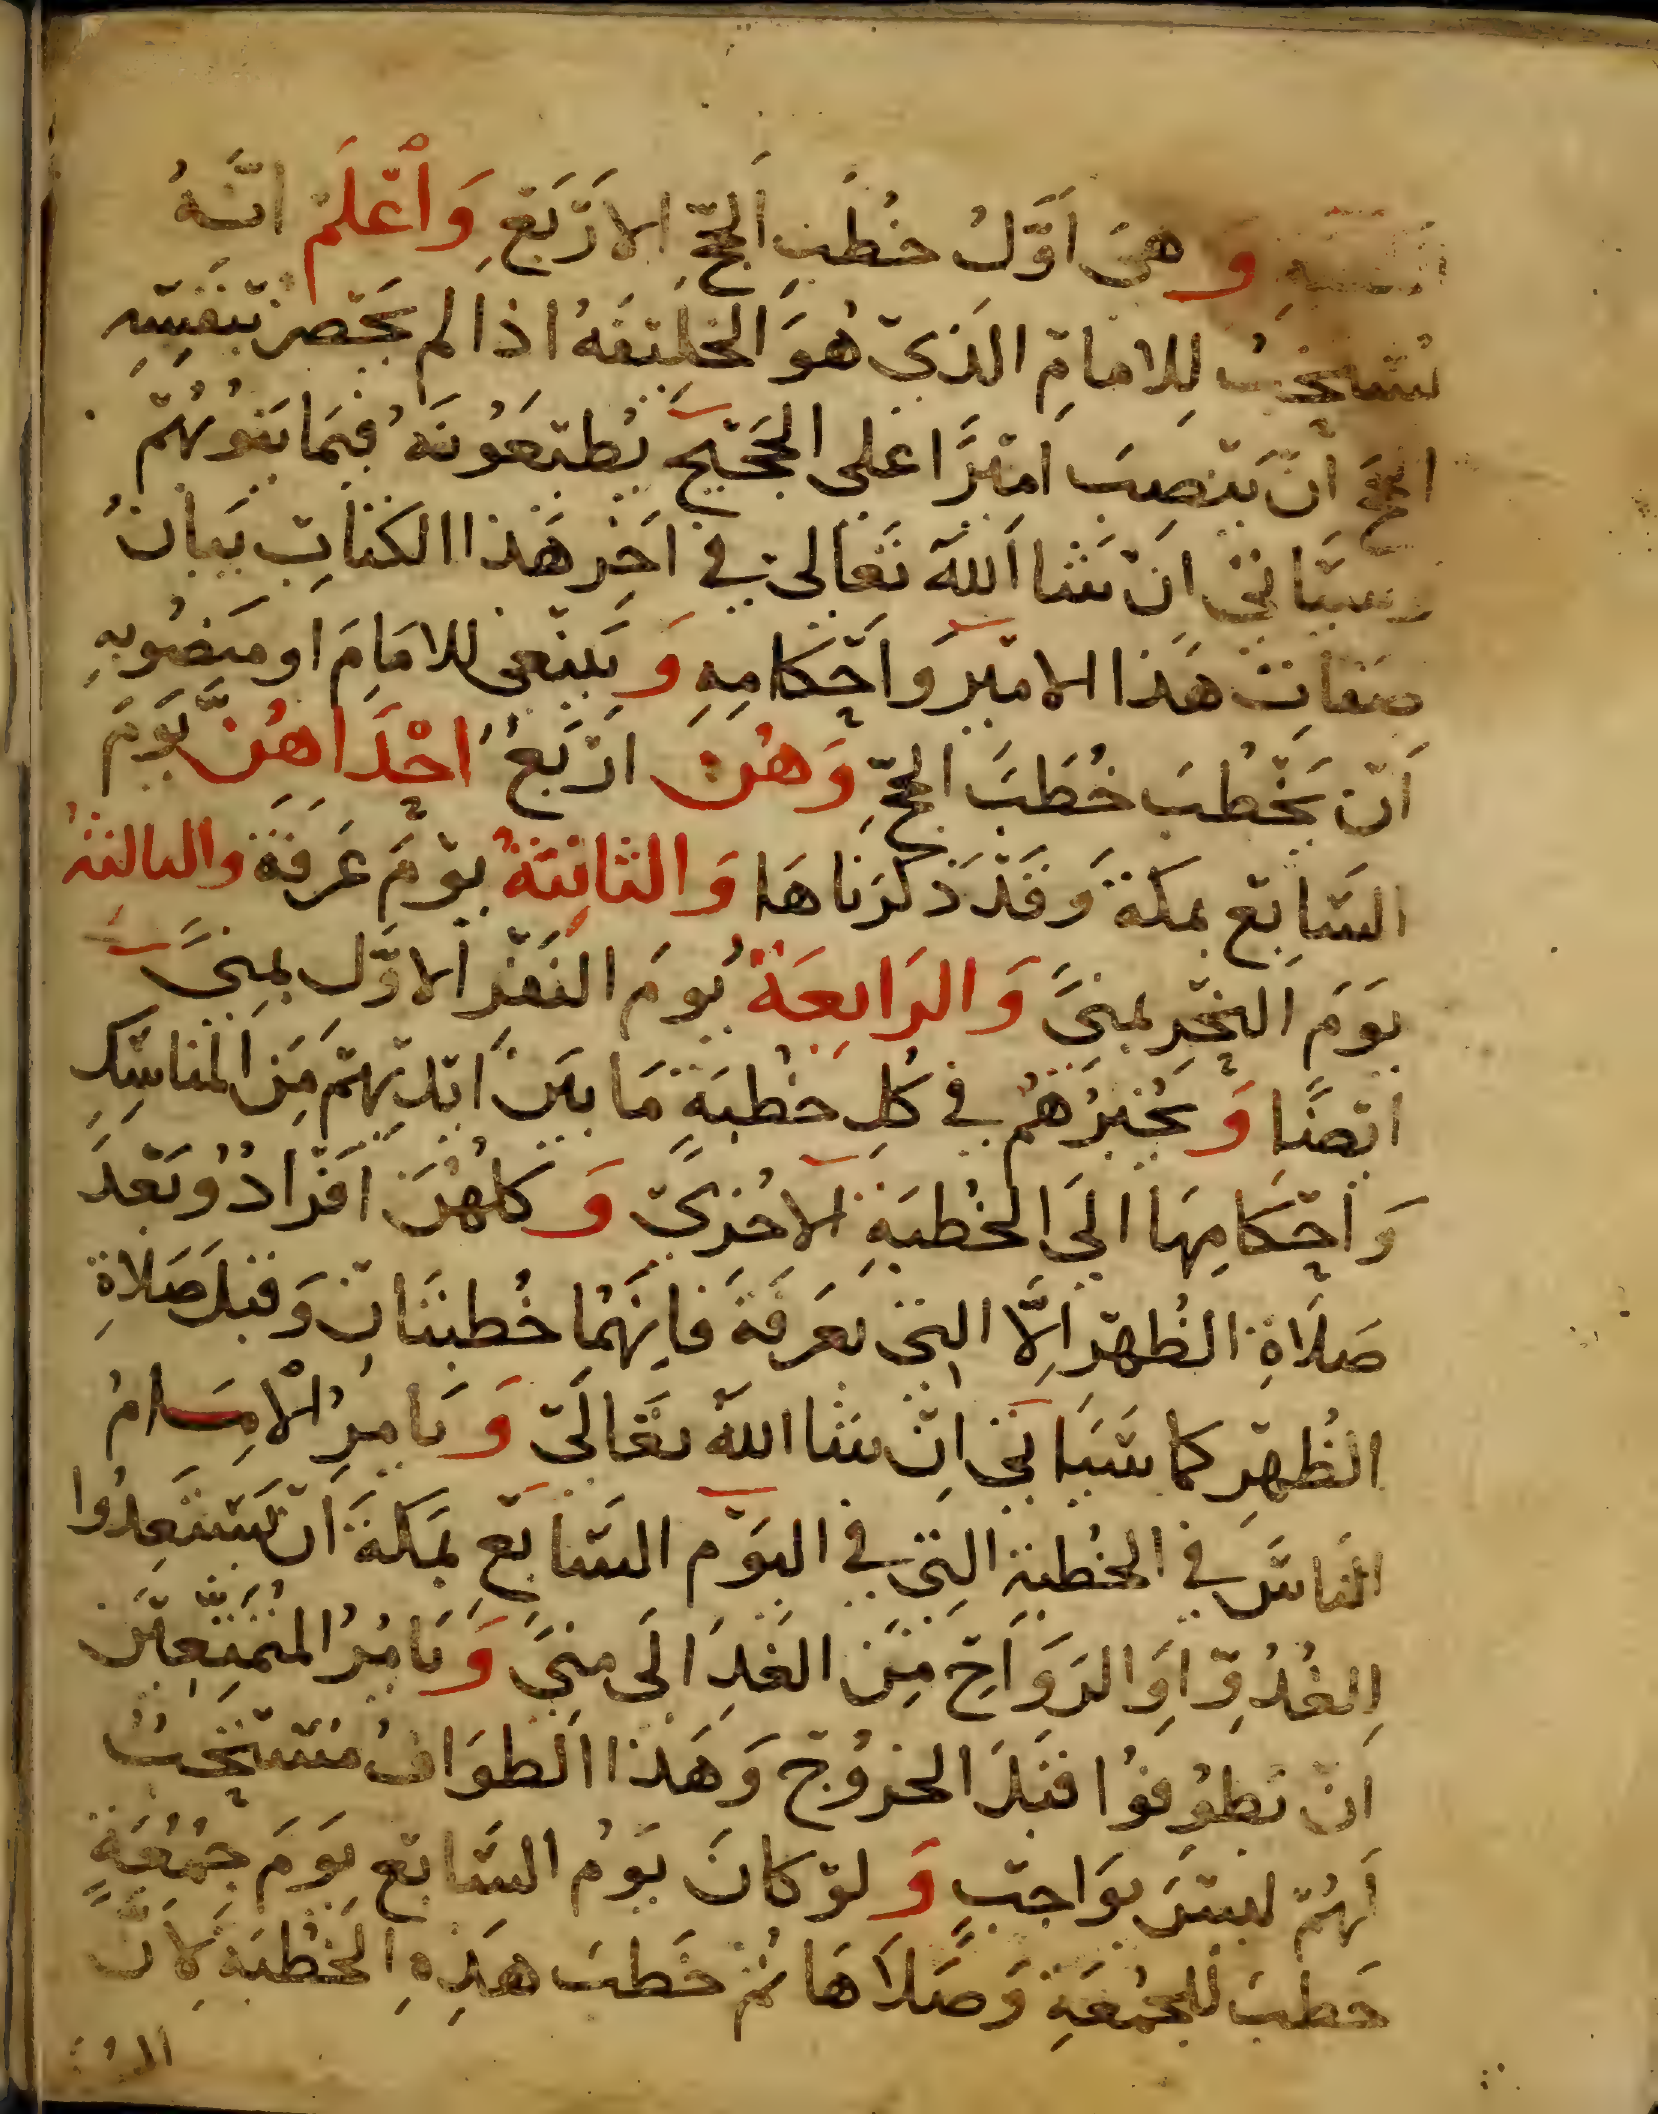 وهي اَوَّلُ خُطَبِ الحَجِّ الارْبَعِ وَاْعْلَمْ انَّهُ
يُسْتَحَبُّ لِلامامِ الذي هُوَ الخَلِيفَهُ اذا لم يَحْضر بنَفْسِهِ
الحَجَّ انْ يَنْصِبَ امْيرًا على الحَجيْجِ يُطيعَوُنَهُ فيمَا يَنُوبُهُمْ
وسيَأتي اِنْ شَا اللهُ تَعَالى في اَخِر هَذا الكتابِ بيَانُ
صفاتِ هَذا الاميْر وَاحْكامِهِ وَ يَنْبَغى للامَامِ او منصُوبهِ
اَنْ يَخْطُبَ خُطَبَ الحجِّ وَهُن ارْبَعُ احْدَاهُنَّ يَوَمَ
السَّابعْ بمكةَ وَقَدْ ذكرَناهَا وَ الثانِيَةُ يوْمَ عَرفةَ والثالثةُ
يَوَمَ النَحْرِ بمنىً وَالرَابعَةُ يُومَ النَفْرَ الاوَّلِ بمِنىً
ايْضًا وَ يُخْبِرُهُم في كُلِ خطْبَةٍ مَا بيَن ايْديْهِمْ مِنَ المناسِكِ
وَاحْكَامِهَا اليَ الخُطبَةِ الاخُرَيْ وَ كلهُنَ افَرْادُ وَبَعْدَ
صَلَاةِ الظُهرْ اِلّا التيْ بعَرفَةَ فانِهَما خُطبَتَانْ وَقبلَ صَلاةِ
الظُهرْ كما سَيَاتي انِْ شا اللهُ تعَالَى وَ يَامِرُ الْامِام
الناسَ في الخُطبة التِي في اليوَم السَابْعِ بمَكةَ انْ يَسَتعِدُوا
لِلغُدُوّ اوَ الرَوَاحِ مِنَ الغَدِ الَى مِنىَ وَ يَامُرُ المُتَمَتّعِيْن
انْ يَطوُفوُا قبَلَ الخروُج وَ هَذا الطوَافُ مُسْتَحَبٌ
لَهُمْ ليسْ بوَاجبْ وَ لوْ كانَ يَوُم السَّابْع يوَمَ جمُعُةٍ
خَطبَ للجمُعَةِ وَ صَلَاهَا ثمَّ خَطبَ هَذِهِ الخُطْبَة لِانَّ